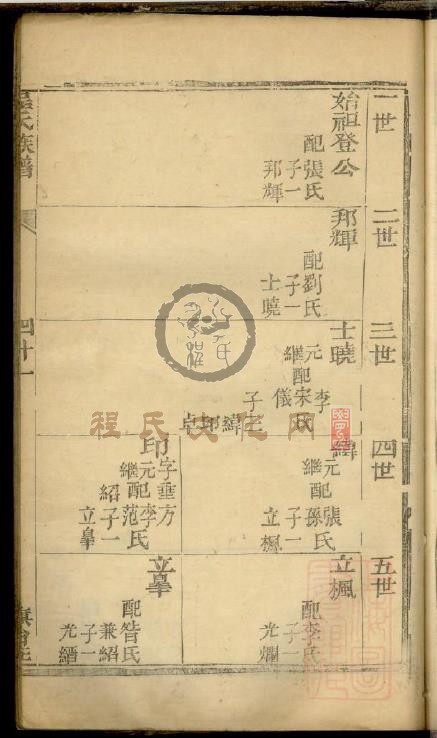 一世
始祖登公
配張氏
子一
邦輝
二世
邦輝
配劉氏
子一
士曉
三世
士曉
元配宋氏
繼 李儀
子三
緯 印 卓
四世
緯
元配張氏
繼 孫
子一
立楓
印
字垂方
元配李氏
繼 范
子一
紹
立皋
五世
立楓
配李氏
子一
光爛
立皋
配昝氏
兼紹
子一
光縉
氏族譜
四十一
程氏
网